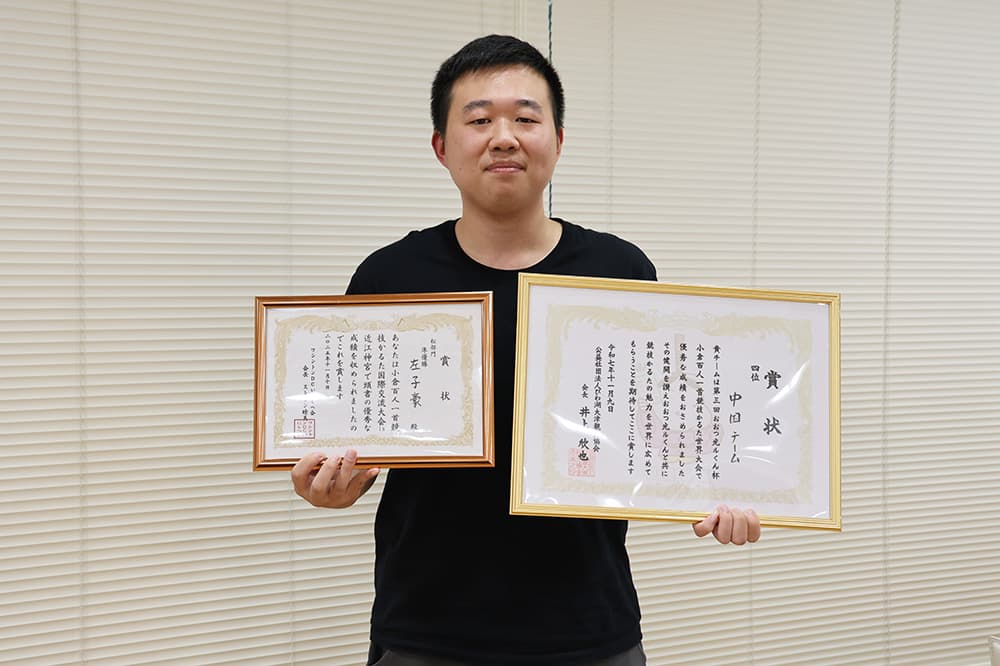 賞状
松部門
準優勝
左子豪 殿
あなたは小倉百人一首競
技かるた国際交流大会に
近江神宮で頭書の優秀な
成績を収められましたの
でこれを賞します
二〇二五年十一月十日
ワシントンDC
会長
賞状
四位
中国チーム
貴チームは第三回おおつ光ルくん杯
小倉百人一首競技かるた世界大会で
優秀な成績をおさめられました
その健闘を讃えおおつ光ルくんと共に
競技かるたの魅力を世界に広めて
もらうことを期待してここに賞します
令和七年十一月九日
公益社団法人びわ湖大津観光協会
会長 井上欣也